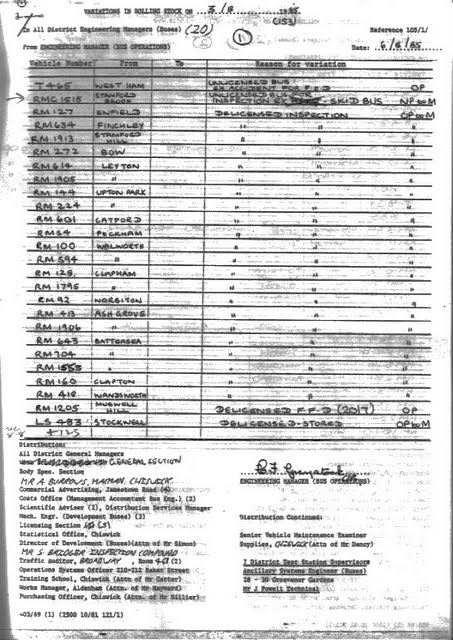 VARIATIONS IN ROLLING STOCK ON 3/8 1985
(153)
To All District Engineering Managers (Buses) (20) (1) Reference 105/1/
From ENGINEERING MANAGER (BUS OPERATIONS) Date: 6/8/85
Vehicle Number From To Reason for variation
T 465 WEST HAM UNLICENSED BUS EX ACCIDENT FOR F.F.D OP
RMC 1518 STAMFORD BROOK UNLICENSED BUS FOR INSPECTION EX SKID BUS NP to M
RM 127 ENFIELD DELICENSED INSPECTION OP to M
RM 634 FINCHLEY " " "
RM 1913 STAMFORD HILL " " "
RM 272 BOW " " "
RM 614 LEYTON " " "
RM 1905 " " " "
RM 144 UPTON PARK " " "
RM 224 " " " "
RM 601 CATFORD " " "
RM 54 PECKHAM " " "
RM 100 WALWORTH " " "
RM 594 " " " "
RM 128 CLAPHAM " " "
RM 1795 " " " "
RM 92 NORBITON " " "
RM 413 ASH GROVE " " "
RM 1906 " " " "
RM 643 BATTERSEA " " "
RM 704 " " " "
RM 1553 " " " "
RM 160 CLAPTON " " "
RM 418 WANDSWORTH " " "
RM 1205 MUSWELL HILL DELICENSED F.F.D (2017) OP
LS 483 STOCKWELL DELICENSED-STORED OP to M
Distribution:
All District General Managers
GENERAL SECTION
Body Spec. Section ENGINEERING MANAGER (BUS OPERATIONS)
MR A BURROWS, CHISWICK
Commercial Advertising, Jamestown Road (4)
Costs Office (Management Accountant Bus Eng.) (2)
Scientific Adviser (2), Distribution Services Manager
Mech. Engr. (Development Buses) (3)
Licensing Section (5) Distribution Continued:
Statistical Office, Chiswick
Director of Development (Buses)(Attn of Mr Simon) Senior Vehicle Maintenance Examiner
MR S BRIDGER INSPECTION COMPOUND Supplies, CHISWICK (Attn of Mr Dency)
Traffic Auditor, BROADWAY, Room
Operations Systems Officer 210-212 Baker Street 7 District Test Station Supervisors
Training School, Chiswick (Attn of Mr Carter) Ancillary Systems Engineer (Buses)
Works Manager, Aldenham (Attn. of Mr Hayward) 28 - 30 Grosvenor Gardens
Purchasing Officer, Chiswick (Attn. of Mr Hillier) Mr J Powell Technical
403/69 (1) (2500 10/81 121/1)